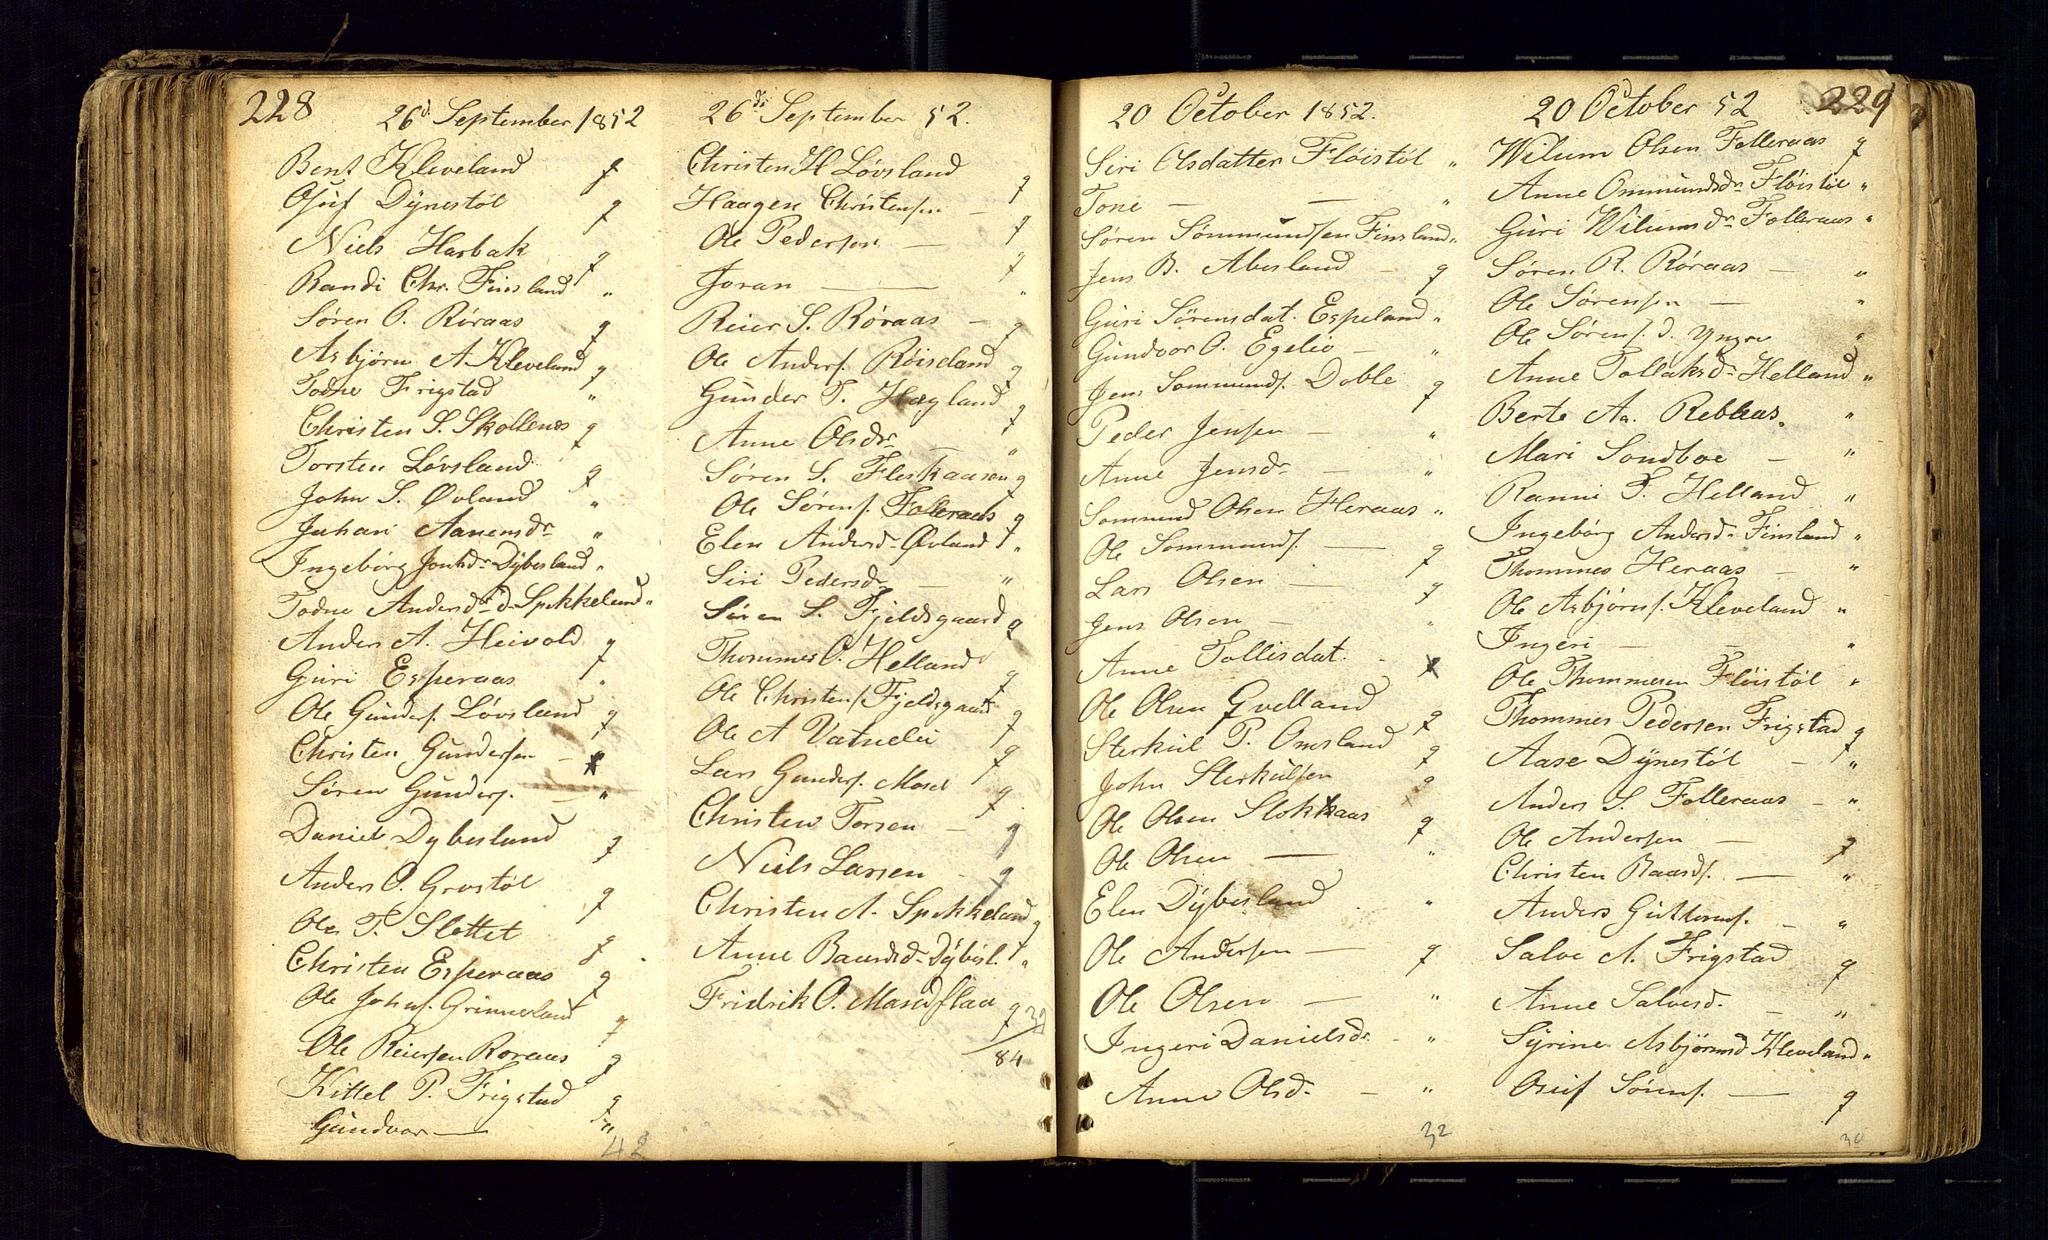 228
26d September 1852
Bent Kleveland q
Osuf Dÿnestøl q
Niels Harbak q
Randi Chr. Finsland "
Søren O. Røraas q
Asbjørn A. Kleveland q
Todne Frigstad "
Christen S. Skollenes q
Torsten Løvsland q
John S. Øvland "
Juhari Aanensdr "
Ingebørg Jonhsdr Dÿbesland "
Todne Andersdr d. Spikkeland "
Anders A. Heivold q
Guri Esperaas "
Ole Gunders. Løvsland q
Christen Gundersen —
Søren Gunders. — "
Daniel Dybesland q
Anders O. Grostøl q
Ole T. Slottet q
Christen Esperaas q
Ole Johns. Grinnersland q
Ole Reiersen Roraas q
Kittel P. Frigstad q
Gundvor — "
42
26de September 52.
Christen H Løvsland q
Haagen Christensen — q
Ole Pedersen — q
Joran — — "
Reier S. Røraas — q
Ole Anders. Røiseland q
Gunder T. Hægland q
Anne Olsdr — "
Søren S. Fleskaasen q
Ole Sørens. Folleraas q
Elen Andersd. Øvland "
Siri Pedersdr — "
Søren S. Fjeldsgaard q
Thommes O. Helland q
Ole Christens. Fjeldsgaard q
Ole A Vatnelei q
Lars Gunders. Moset q
Christen Torsen — q
Niels Larsen — q
Christen A. Spikkeland q
Anne Baardsd. Dÿbesl. "
Fridrik O. Mandflaa q
32
84
20 October 1852.
Siri Olsdatter Fløistøl "
Tone — — "
Søren Sømmundsen Finsland "
Jens B. Abesland — q
Guri Sørensdat. Espeland "
Gundvor O. Egelio — "
Jens Sommunds. Doble q
Peder Jensen — "
Anne Jensdr — "
Sommund Olsen Heraas "
Ole Sommunds. — q
Lars Olsen — q
Jens Olsen — "
Anne Tollisdat. -
Ole Olsen Qvelland q
Sterkul P. Omsland q
John Sterkulsen q
Ole Olsen Stokkaas q
Ole Olsen — "
Elen Dÿbesland "
Ole Andersen — q
Ole Olsen — "
Ingeri Danielsdr - "
Anne Olsd. — "
32
20 October 52
229
Wilum Olsen Folleraas q
Anne Ommundsdr Fløistøl "
Guri Wilumsdr Folleraas "
Søren R. Røraas — "
Ole Sørensen — "
Ole Sørens. d. Yngre "
Anne Tollaksdr Helland "
Berte Aa. Rebkaas. "
Mari Sondboe — "
Ranni T. Helland "
Ingebørg Andersd. Finsland "
Thommes Heraas — "
Ole Asbjørns. Kleveland "
Ingeri — — "
Ole Thommesen Fløistøl "
Thommes Pedersen Frigstad q
Aase Dÿnestøl — "
Anders S. Folleraas — "
Ole Andersen — q
Christen Baards. — "
Anders Guttorms. — "
Salve A. Frigstad q
Anne Salvesd. — "
Syrine Asbjørnsd Kleveland "
Osuf Sørens. — q
30